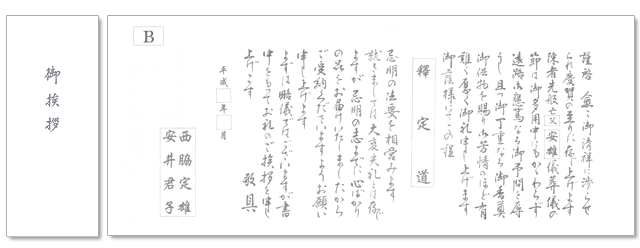 御挨拶
B
謹啓 愈々御清祥に渉らせ
られ慶賀の至りに存じ上げます
陳者先般亡父安雄儀葬儀の
節は御多用中にもかゝわらず
遠路御懇篤なる御弔問を辱
うし且つ御丁重なる御香奠
御供物を賜り御芳情のほど有
難く厚く御礼申し上げます
御蔭様にてこの程
釋 定 道
忌明の法要を相営みます
就きましては大変失礼とは存
ますが忌明の志までに心ばかり
の品をお届けいたしましたから
ご受納くださいますようお願い
申し上げます
まずは略儀ではございますが書
中をもってお礼のご挨拶を申し
上げます
敬具
平成 年 月
西脇定雄
安井君子